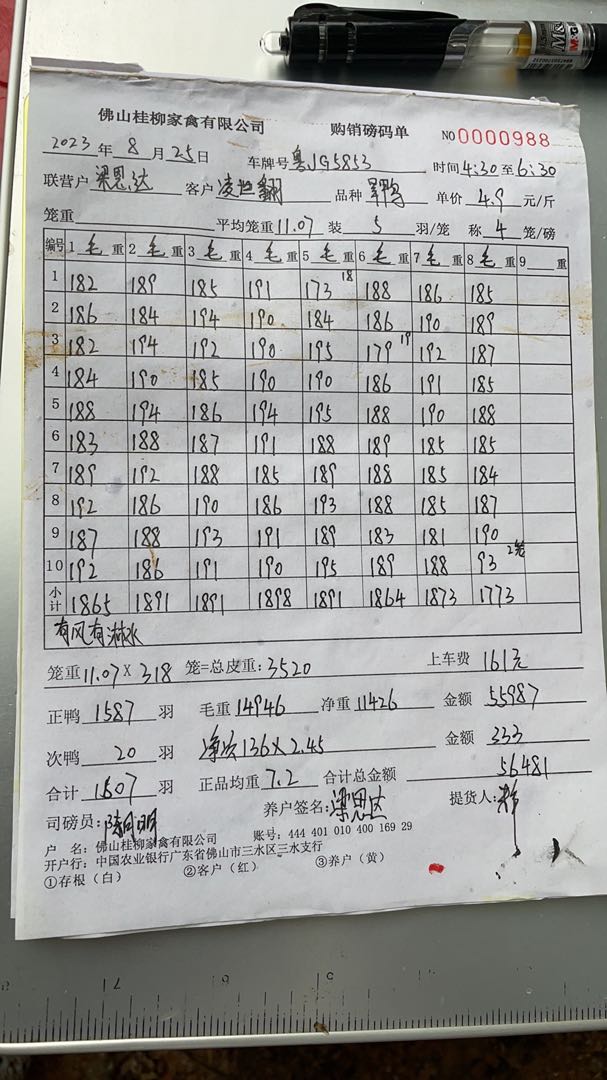 佛山桂柳家禽有限公司 购销磅码单 NO 0000988
2023年8月25日 车牌号粤JG5853 时间4:30至6:30
联营户梁恩达 客户 品种 单价4.9元/斤
笼重 平均笼重11.07装5羽/笼 称4笼/磅
编号 1毛重 2毛重 3毛重 4毛重 5毛重 6毛重 7毛重 8毛重 9重
1 182 189 185 191 173 18 188 186 185
2 186 184 194 190 184 186 190 189
3 182 194 192 190 195 179 19 192 187
4 184 190 185 190 190 186 191 185
5 188 194 186 194 195 188 190 188
6 183 188 187 191 188 189 185 185
7 189 192 188 185 189 188 185 184
8 192 186 190 186 193 188 185 187
9 187 188 193 191 189 183 181 190
10 192 186 191 190 195 189 188 93 2笼
小计 1865 1891 1891 1898 1891 1864 1873 1773
有风有淋水
笼重11.07×318笼=总皮重:3520 上车费161元
正鸭1587羽 毛重14946 净重11426 金额55987
次鸭20羽 净次136×2.45 金额333
合计1607羽 正品均重7.2 合计总金额56481
司磅员: 养户签名:梁恩达 提货人:
户 名:佛山桂柳家禽有限公司 账号:444 401 010 400 169 29
开户行:中国农业银行广东省佛山市三水区三水支行
①存根(白) ②客户(红) ③养户(黄)